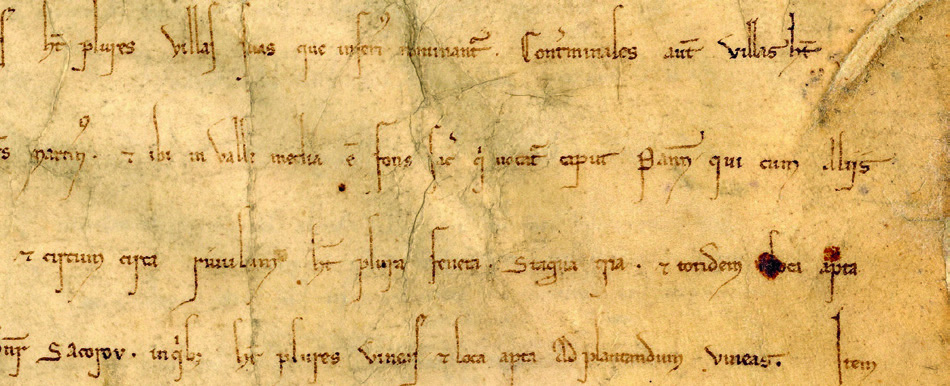 ht̄ plures villas suas que inferi nominant᷑. Cont᷑minales aut̄ villas ht̄
martin⁹. ⁊ ibi in valle media ē fons sic̄ qⁱ uocat᷑ caput Pann̄ qui cum aliis
⁊ circum circa riuulum ht̄ plura feneta. Stagna tria. ⁊ totidem loca apta
Sacorov. in qⁱb; ht̄ plures vineas ⁊ loca apta Ad plantandum vineas. Item